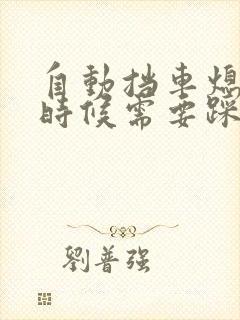 自動挡車熄
時候需要踩
劉普强